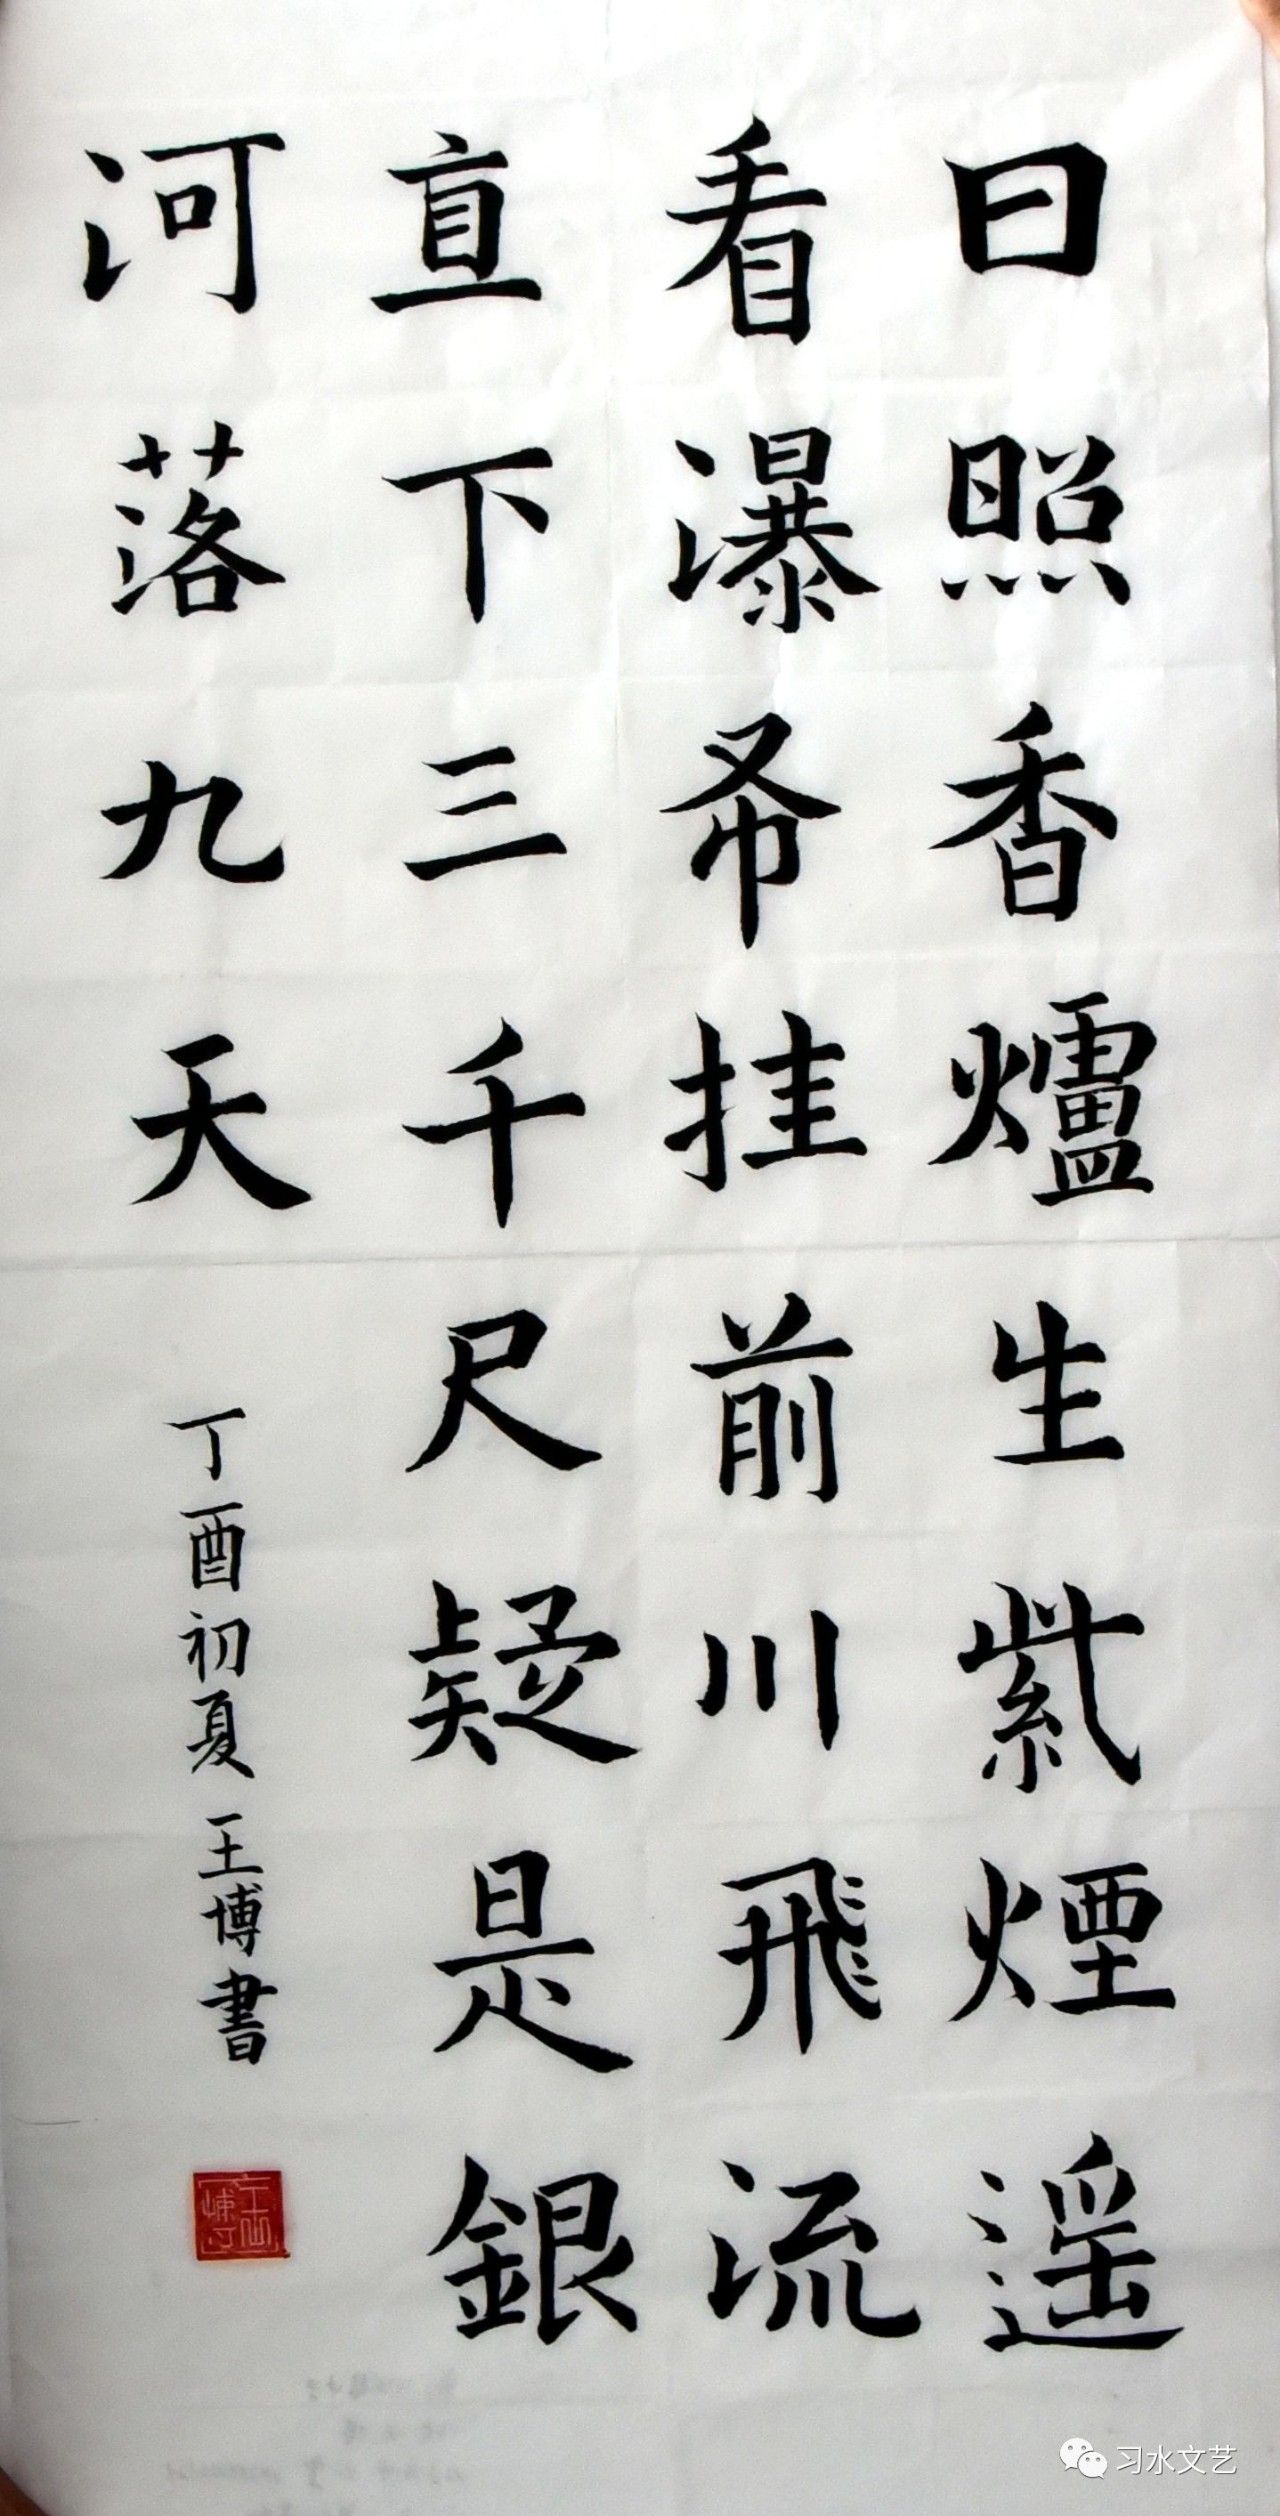 日照香爐生紫煙遥
看瀑布挂前川飛流
直下三千尺疑是銀
河落九天
丁酉初夏王博書
习水文艺